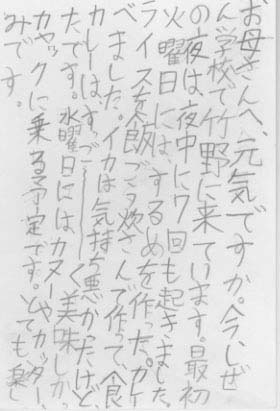 お母さんへ、元気ですか。今、しぜ
ん学校で竹野に来ています。最初
の夜は、夜中に7回も起きました。
火曜日には、するめを作った。カレー
ライスを飯ごう炊さんで作って、食
べました。イカは気持ち悪かったけど、
カレーはすっごーく美味しかっ
たです。水曜日にはカヌーやカッター、
カヤックに乗る予定です。とても楽し
みです。